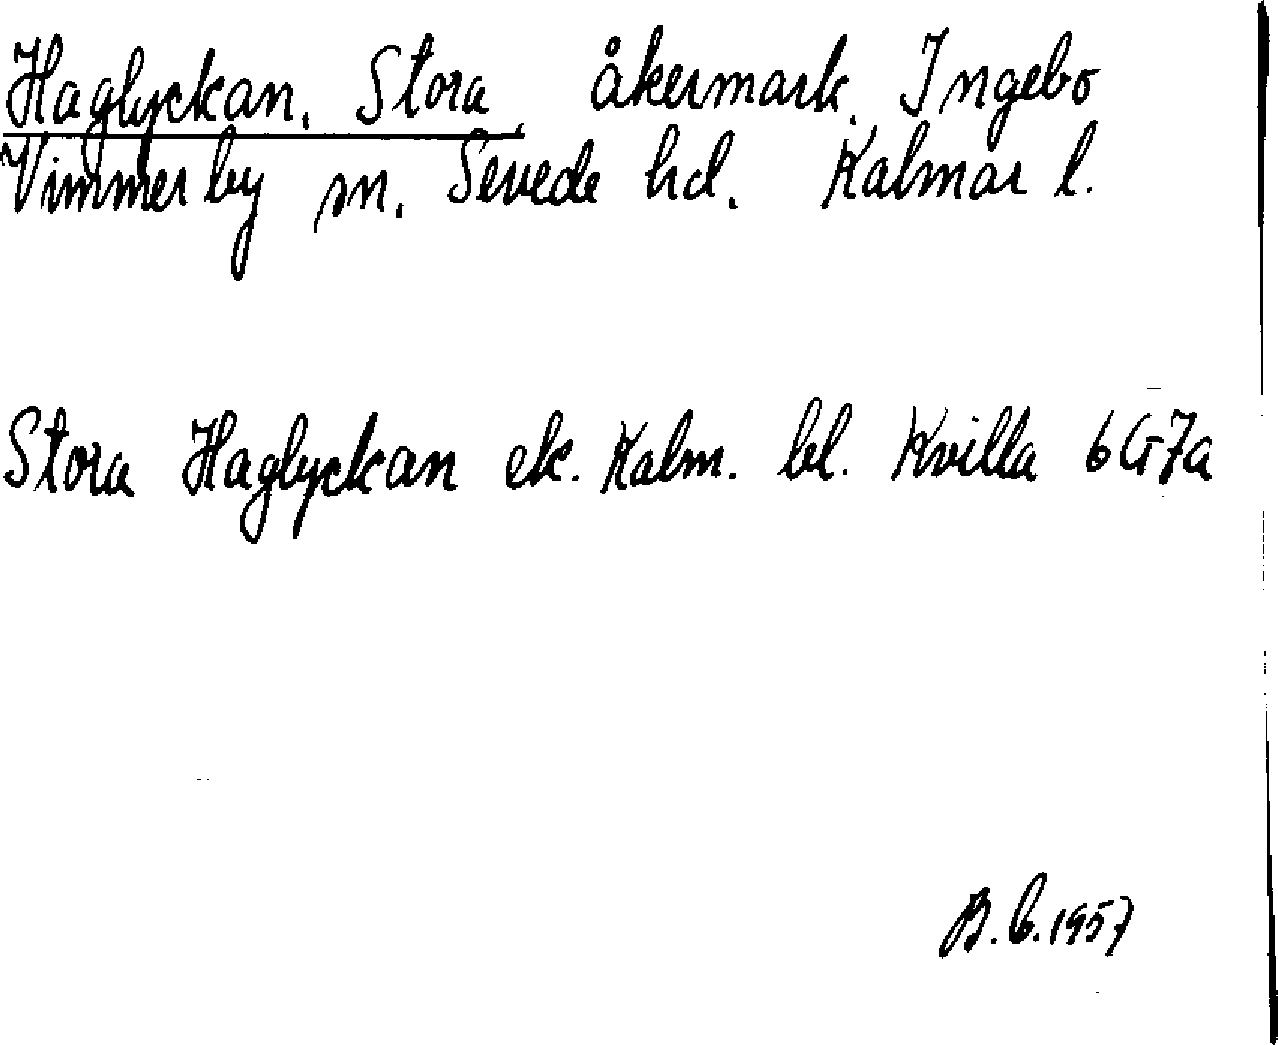 Haglyckan, Stora, åkermark, Ingebo
Vimmerby sn, Sevede hd. Kalmar l.
Stora Haglyckan ek. Kalm. bl. Kvilla 6G7a
B.G.1957